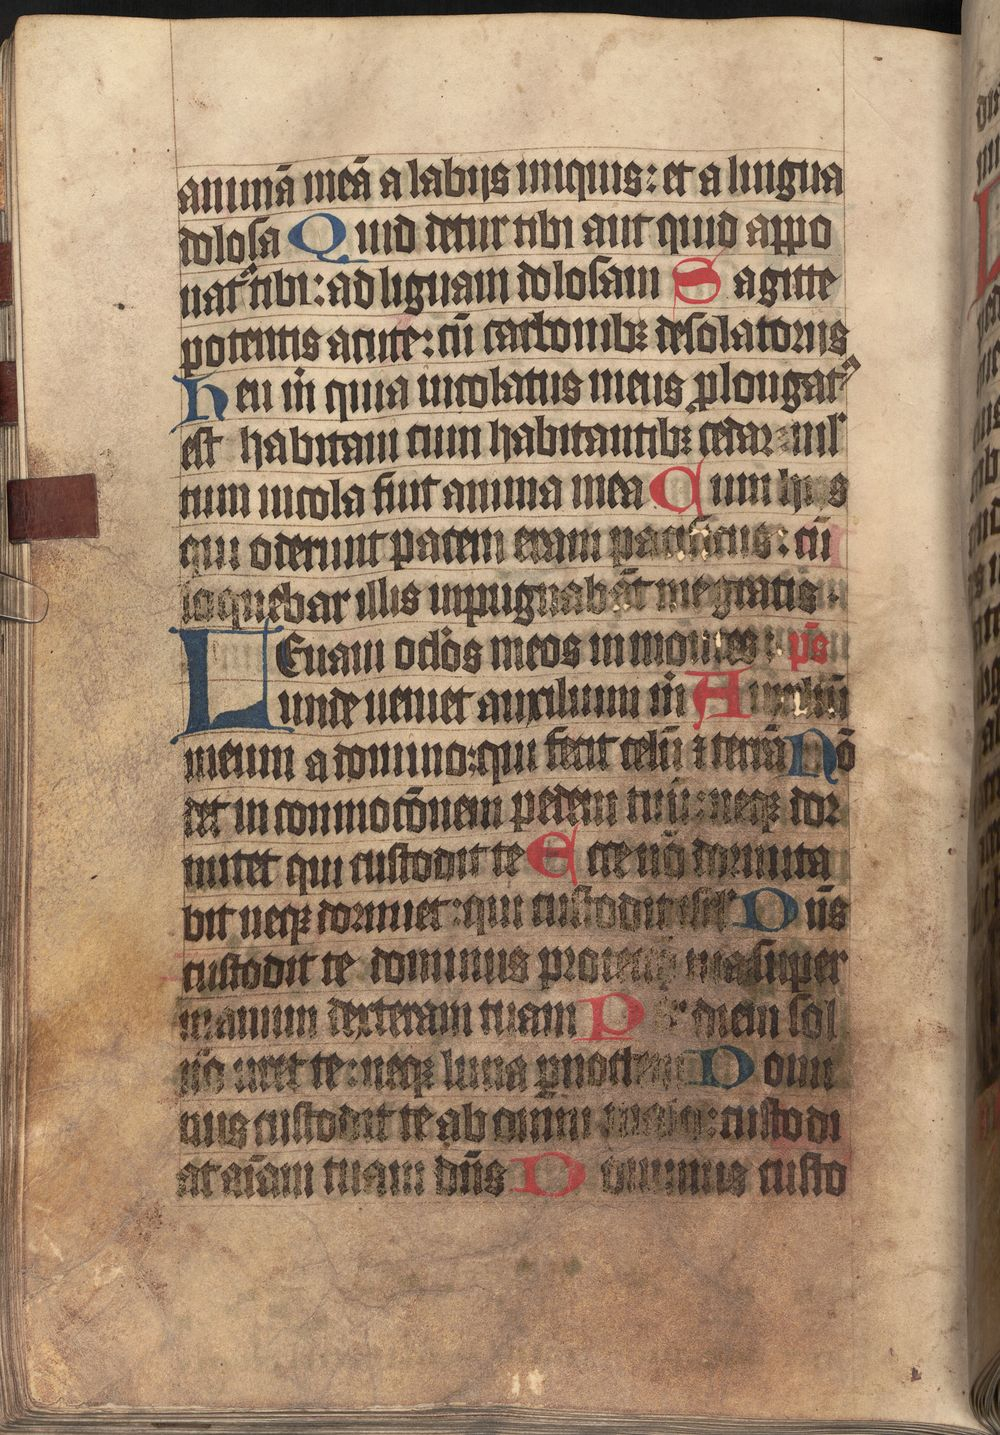 animā meā a labijs iniquis: et a lingua
dolosa Quid detur tibi aut quid appo
nat᷑ tibi: ad liguam dolosam Sagitte
potentis acute: cū carbonibꝫ desolatorijs
Heu m̄ quia incolatus meus ꝓlongat᷑
est habitaui cum habitantibꝫ cedar: ml
tum incola fuit anima mea Cum hijs
qui oderunt pacem eram pacificus: cū
loquebar illis inpugnabāt me gratis
LEuaui oclōs meos in montes: pš
unde ueniet auxilium m̄ Auxiliū
meum a domino: qui fecit celū ⁊ terrā Nō
det in conmocōnem pedem tuū: neqꝫ dor
mitet qui custodit te Ecce nō dormita
bit neqꝫ dormiet: qui custodit isrl Dn̄s
custodit te dominus protectio tua super
manum dexteram tuam Per diem sol
nō uret te: neqꝫ luna ꝑ noctem Domi
nus custodit te ab omni malo: custodi
at aīam tuam dn̄s Dominus custo